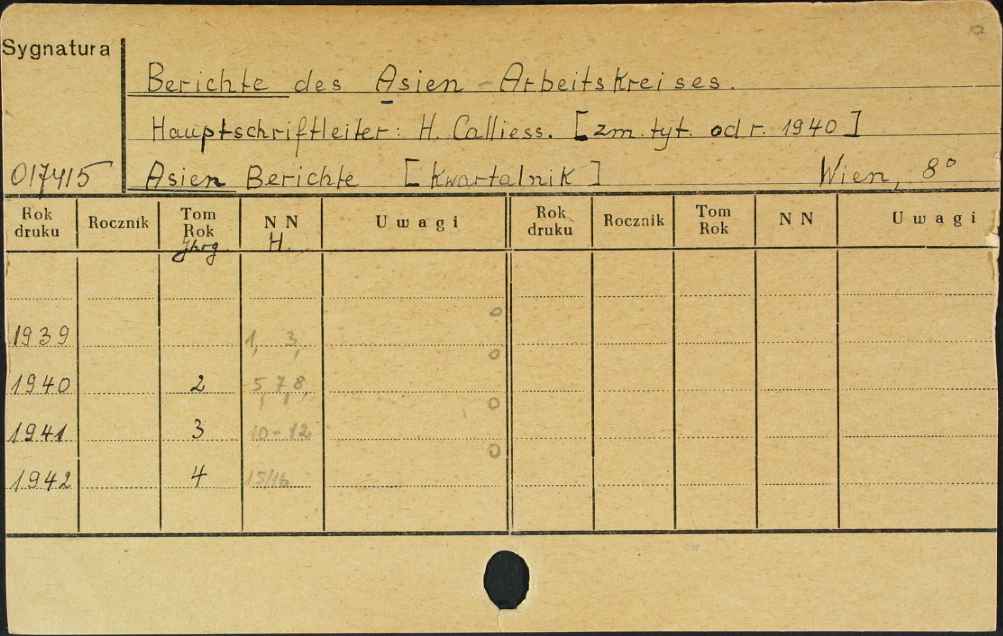 Sygnatura
Berichte des Asien-Arbeitskreises.
Hauptschriftleiter: H. Calliess. [zm. tyt. od r. 1940]
017415 Asien Berichte [Kwartalnik] Wien, 8°
Rok druku Rocznik Tom Rok Jhrg. NN H. Uwagi Rok druku Rocznik Tom Rok NN Uwagi
1939 1, 3,
1940 2 5, 7, 8,
1941 3 10-12
1942 4 15/16